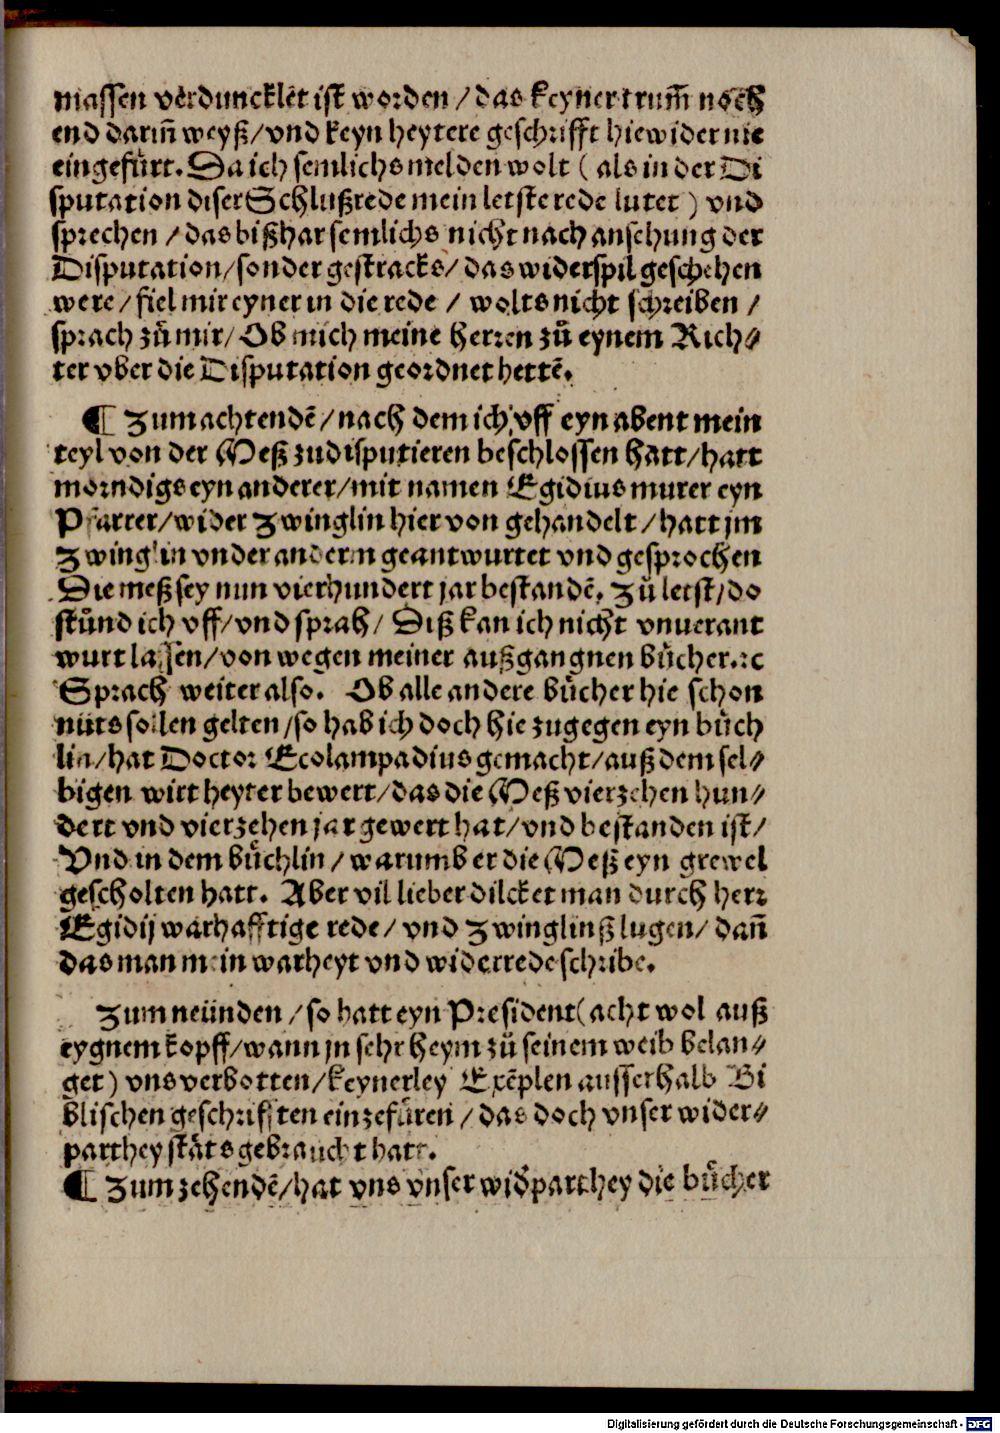 massen verduncklet ist worden / das keyner trum̃ noch
end darin̄ weyß / vnd keyn heytere geschrifft hiewider nie
eingefürt. Da ich semlichs melden wolt ( als in der Di
sputation diser Schlußrede mein letste rede lutet ) vnd
sprechen / das bißhar semlichs nicht nach ansehung der
Disputation / sonder gestracks / das widerspil geschehen
were / fiel mir eyner in die rede / wolts nicht schreiben /
sprach zů mir / Ob mich meine herren zů eynem Rich⸗
ter vber die Disputation geordnet hettē.
¶ Zum achtendē / nach dem ich vff eyn abent mein
teyl von der Meß zudisputieren beschlossen hatt / hatt
morndigs eyn anderer / mit namen Egidius murer eyn
Pfarrer / wider Zwinglin hier von gehandelt / hatt jm
Zwinglin vnder anderm geantwurtet vnd gesprochen
Die meß sey nun vierhundert jar bestandē. Zů letst / do
stůnd ich vff / vnd sprah / Diß kan ich nicht vnuerant
wurt lassen / von wegen meiner außgangnen bůcher. ꝛc
Sprach weiter also. Ob alle andere bůcher hie schon
nüts sollen gelten / so hab ich doch hie zugegen eyn bůch
lin / hat Doctor Ecolampadius gemacht / auß dem sel⸗
bigen wirt heyter bewert / das die Meß vierzehen hun⸗
dert vnd vierzehen jar gewert hat / vnd bestanden ist /
Vnd in dem bůchlin / warumb er die Meß eyn grewel
gescholten hatt. Aber vil lieber dilcket man durch herr
Egidij warhafftige rede / vnd Zwinglinß lugen / dan̄
das man mein warheyt vnd widerrede schribe.
Zum neünden / so hatt eyn President ( acht wol auß
eygnem kopff / wann jn sehr heym zů seinem weib belan⸗
get ) vns verbotten / keynerley Exēplen ausserhalb Bi
blischen geschrifften einzefůren / das doch vnser wider⸗
parthey stäts gebraucht hatt.
¶ Zum zehendē / hat vns vnser widꝰparthey die bůcher
Digitalisierung gefördert durch die Deutsche Forschungsgemeinschaft - DFG